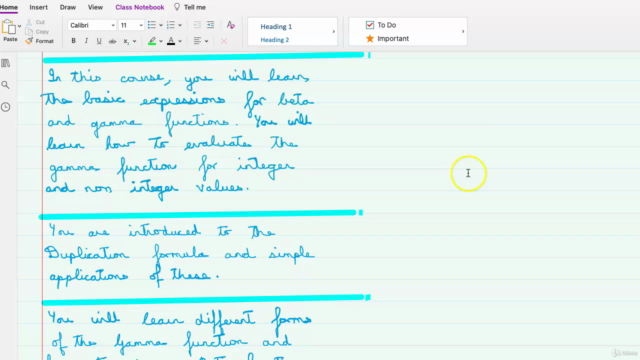 Home Insert Draw View Class Notebook Tell me
Paste Cut Copy Format Calibri 11 Heading 1 Heading 2 To Do Important
In this course, you will learn
the basic expressions for beta
and gamma functions. You will
learn how to evaluate the
gamma function for integer
and non integer values.
You are introduced to the
Duplication formula and simple
applications of these.
You will learn different forms
of the Gamma function and